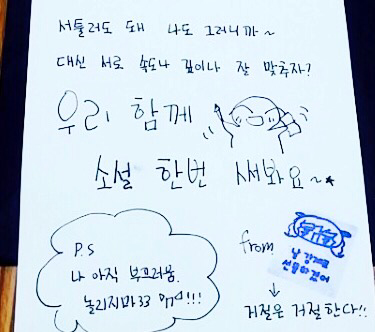 서툴러도 돼 나도 그러니까~
대신 서로 속도나 깊이나 잘 맞추자?
우리 함께
소설 한번 써봐요~★
P.S
나 아직 부끄러웅.
놀리지마
!!!
from
거절은 거절한다!!